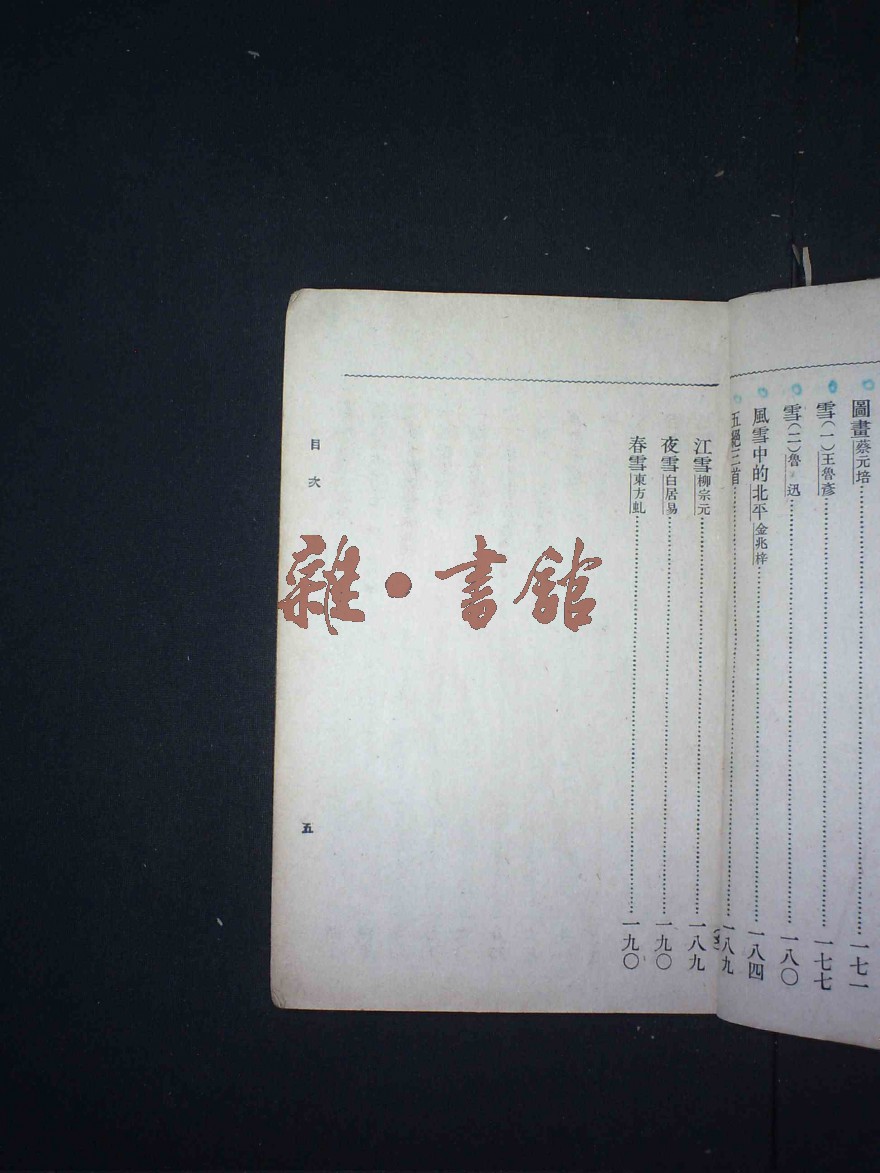 圖畫 蔡元培 一七一
雪(一) 王魯彥 一七七
雪(二) 魯迅 一八〇
風雪中的北平 金兆梓 一八四
五絕三首 一八九
江雪 柳宗元 一八九
夜雪 白居易 一九〇
春雪 東方虬 一九〇
目次
五
雜·書館